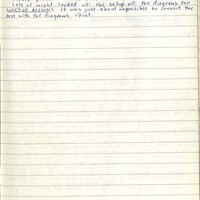 Late at night looked at the setup of the diagrams for
It was just about impossible to connect the
text with the diagrams.